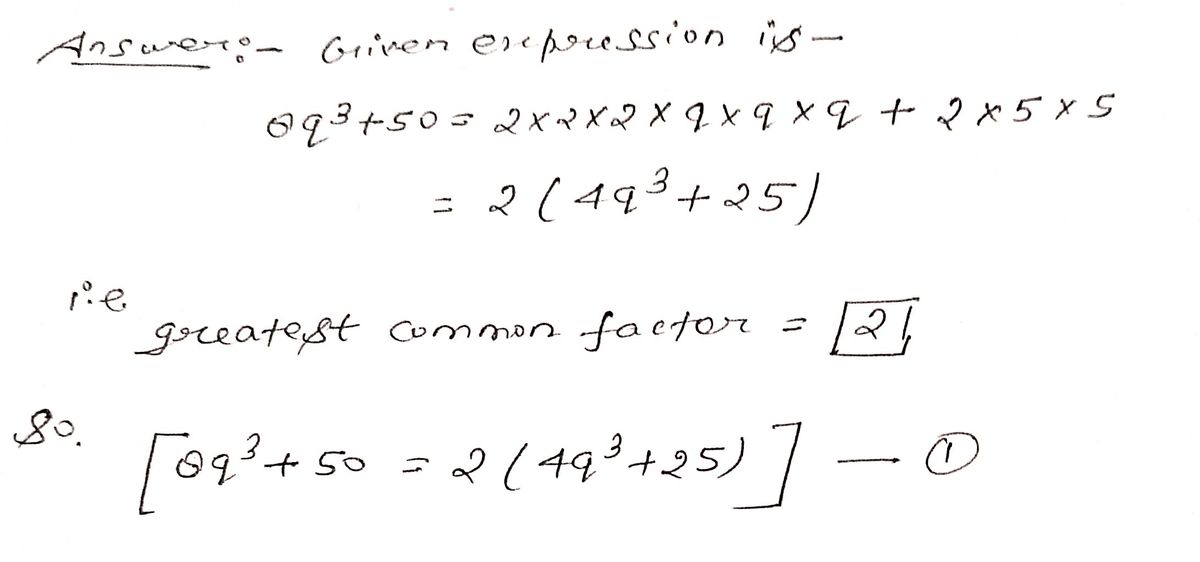 Answer:- Given expression is -
8q³+50 = 2×2×2×q×q×q + 2×5×5
= 2(4q³+25)
i.e.
greatest common factor = 2
So.
[8q³+50 = 2(4q³+25)] — ①